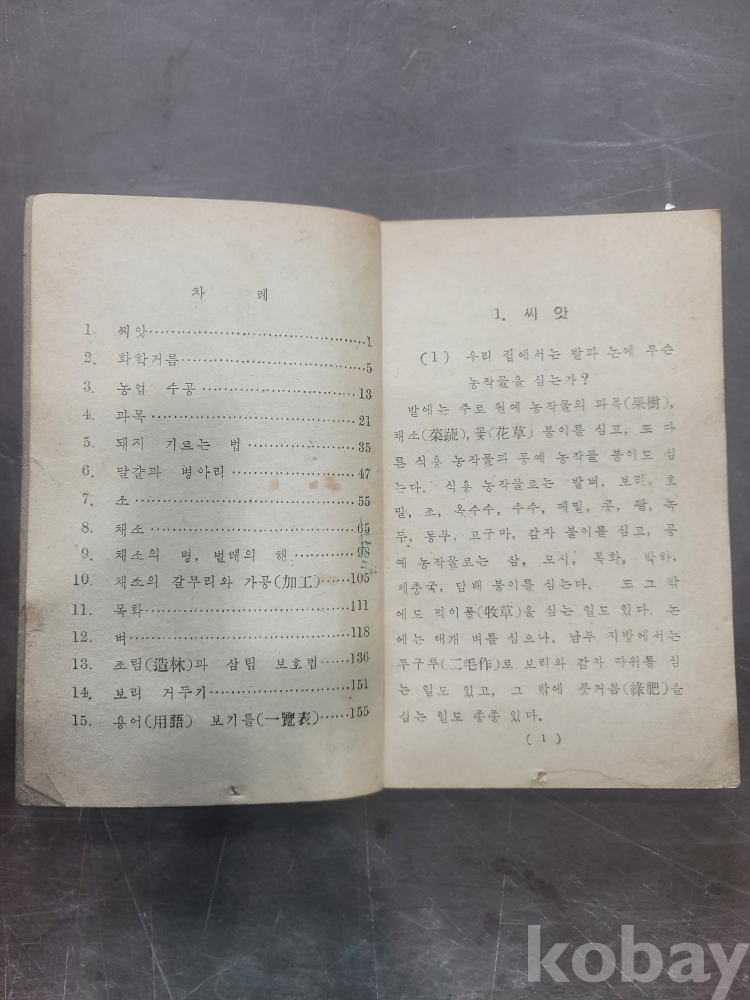 차 례
1. 씨앗 1
2. 화학거름 5
3. 농업 수공 13
4. 과목 21
5. 돼지 기르는 법 35
6. 달걀과 병아리 47
7. 소 55
8. 채소 65
9. 채소의 병, 벌레의 해 98
10. 채소의 갈무리와 가공(加工) 105
11. 목화 111
12. 벼 118
13. 조림(造林)과 삼림 보호법 136
14. 보리 거두기 151
15. 용어(用語) 보기틀(一覽表) 155
1. 씨 앗
(1) 우리 집에서는 밭과 논에 무슨
농작물을 심는가?
밭에는 주로 원예 농작물의 과목(果樹),
채소(菜蔬), 꽃(花草) 붙이를 심고, 또 다
른 식용 농작물과 공예 농작물 붙이도 심
는다. 식용 농작물로는 밭벼, 보리, 호
밀, 조, 옥수수, 수수, 메밀, 콩, 팥, 녹
두, 동부, 고구마, 감자 붙이를 심고, 공
예 농작물로는 삼, 모시, 목화, 박하,
제충국, 담배 붙이를 심는다. 또 그 밖
에도 먹이풀(牧草)을 심는 일도 있다. 논
에는 대개 벼를 심으나, 남부 지방에서는
두구루(二毛作)로 보리와 감자 따위를 심
는 일도 있고, 그 밖에 풋거름(綠肥)을
심는 일도 종종 있다.
( 1 )
kobay